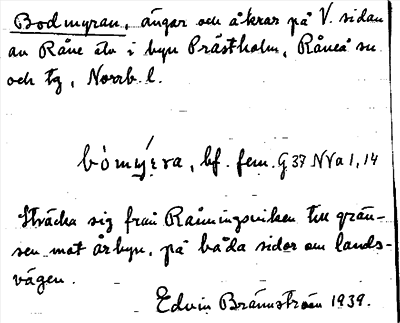 Bodmyran, ängar och åkrar på V. sidan
av Råne älv i byn Prästholm, Råneå sn
och tg, Norrb. l.
bòmỳra, bf. fem. G 37 NVa 1, 14
Sträcka sig från Rånningsviken till grän-
sen mot Årbyn, på båda sidor om lands-
vägen.
Edvin Brännström 1939.